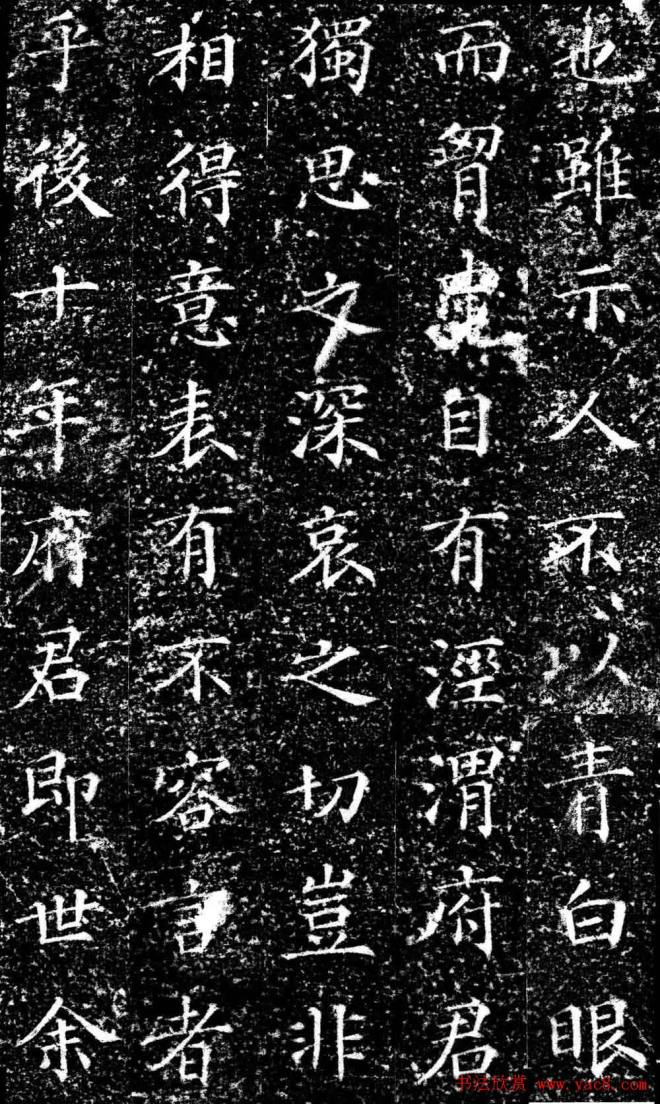 也雖示人不以青白眼
而胷自有涇渭府君
獨思文深哀之切豈非
相得意表有不容言者
乎後十年府君即世余
书法欣赏 www.yac8.com